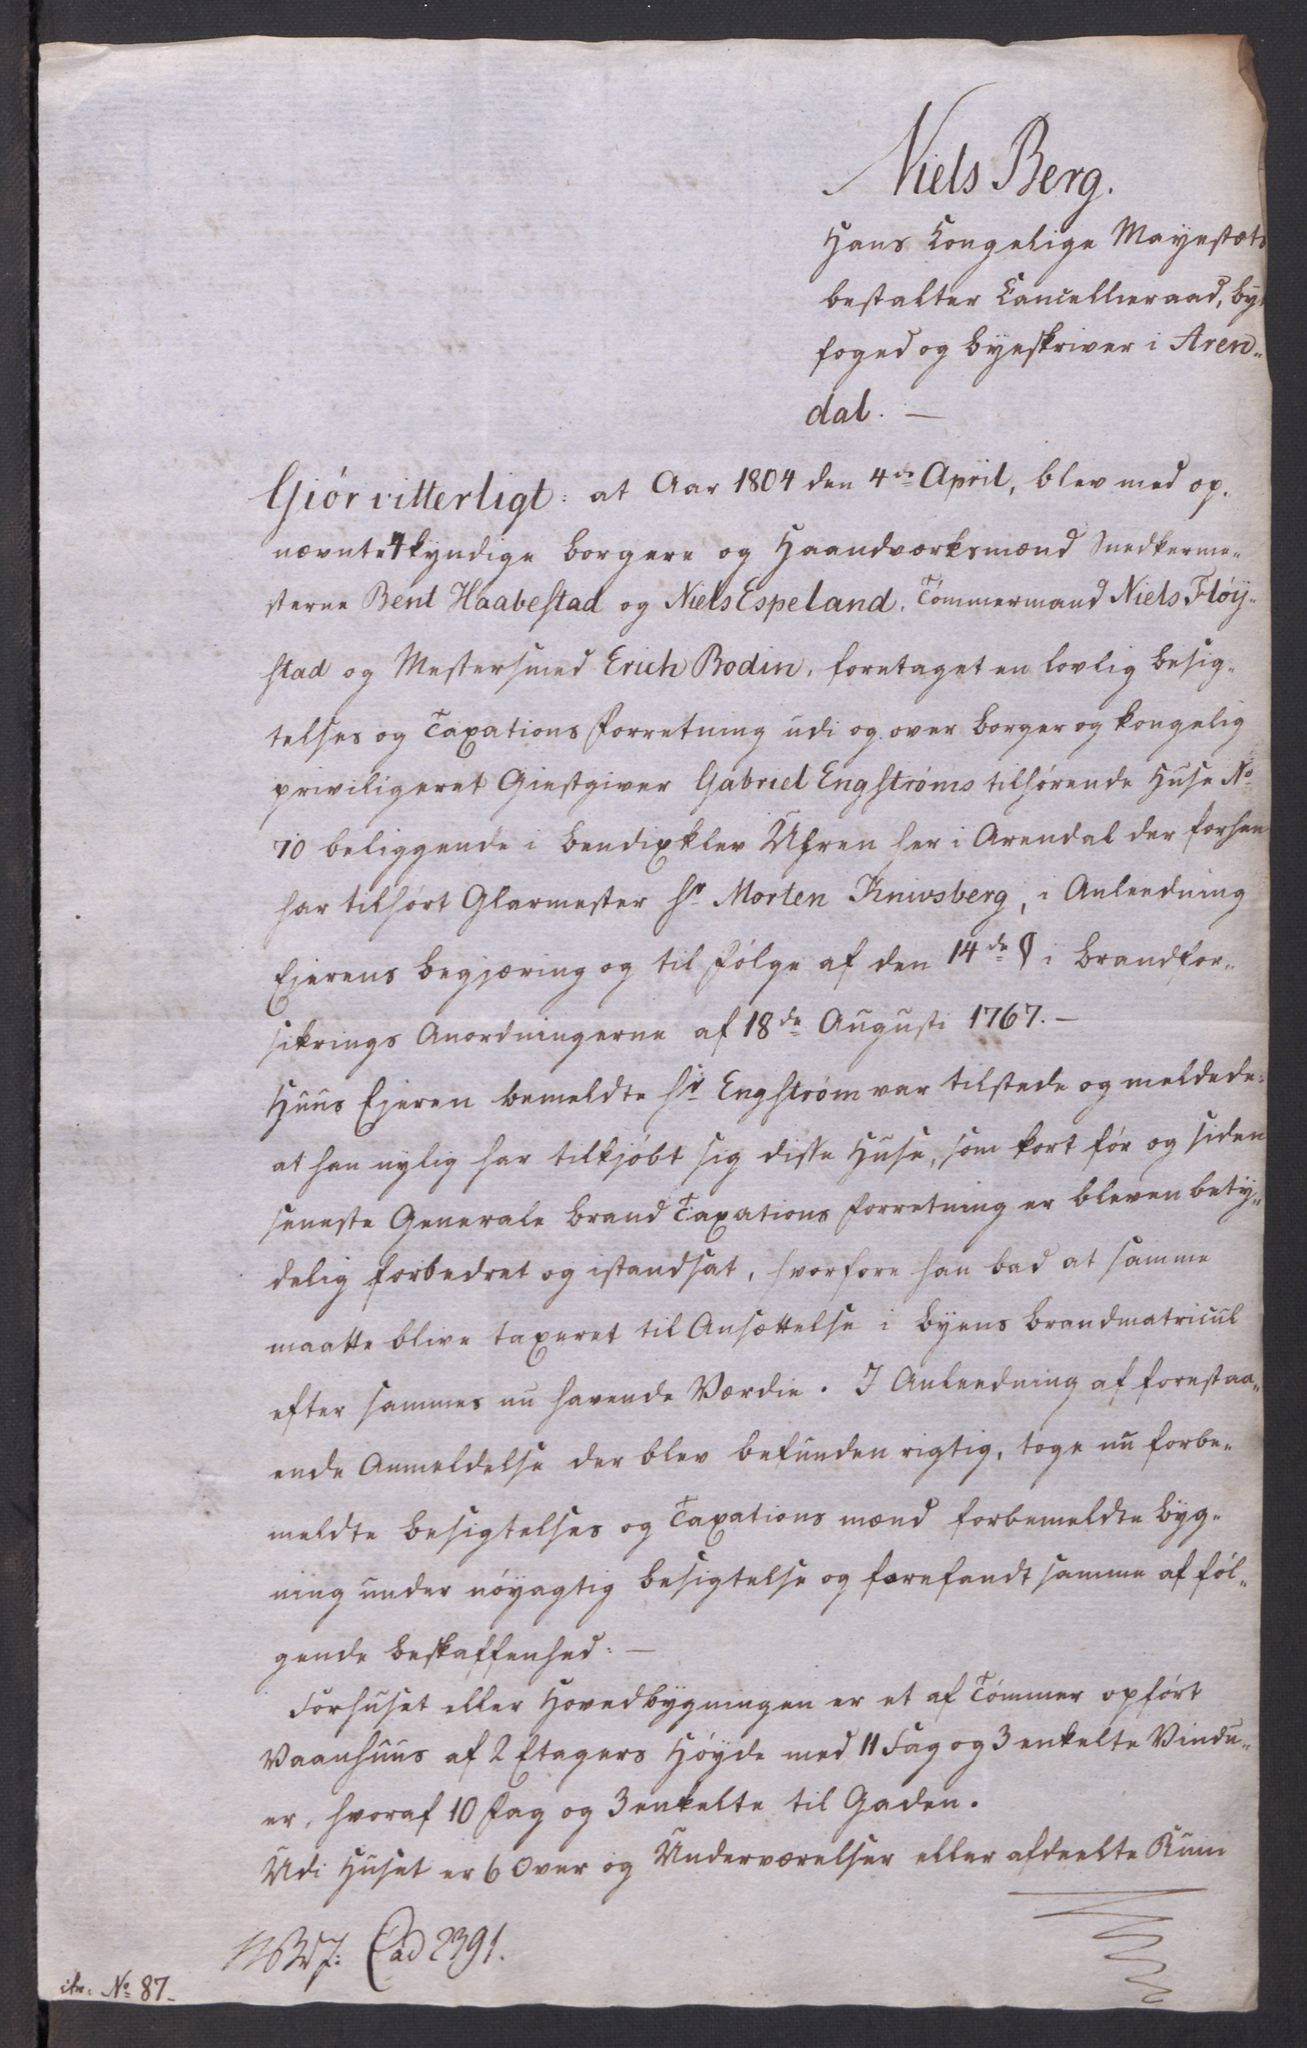 Niels Berg.
Hans Kongelige Mayestæts
bestalter Cancellieraad, bye
foged og byeskriver i Aren„
dal. —
Giör vitterligt: at Aar 1804 den 4de April, blev med op„
nævnte 4 kyndige borgere og Haandværksmænd Snedkerme„
sterne Bent Haabestad og Niels Espeland, Tömmermand Niels Flöy„
stad og Mestersmed Erich Bodin, foretaget en lovlig besig„
telses og Taxations forretning udi og over borger og kongelig
priviligeret Giestgiver Gabriel Engströms tilhörende Huse No
70 beliggende i bendixklev Uhren her i Arendal der forhen
har tilhört Glarmester Hr Morten Knivsberg, i Anleedning
Ejerens begjæring og til fölge af den 14de § i brandfor„
sikrings Anordningerne af 18de Augusti 1767. —
Huus Ejeren bemeldte Hr Engström var tilstede og meldede:
at han nylig har tilkjöbt sig disse Huse, som kort för og siden
seneste Generale brand Taxations forretning er bleven bety„
delig forbedret og istandsat, hvorfore han bad at samme
maatte blive taxeret til Ansættelse i byens brandmatricul
efter sammes nu havende Værdie. I Anleedning af forestaa„
ende Anmeldelse der blev befunden rigtig, toge nu forbe„
meldte besigtelses og Taxations mænd forbemeldte byg„
ning under nöyagtig besigtelse og forefandt samme af föl„
gende beskaffenhed: —
Forhuset eller Hovedbygningen er et af Tömmer opfört
Vaanhuus af 2 Etagers Höyde med 11 Fag og 3 enkelte Vindu„
er, hvoraf 10 fag og 3 enkelte til Gaden.
Udi Huset er 6 Over og Underværelser eller afdeelte Rum
Cad 2391.
No 87.